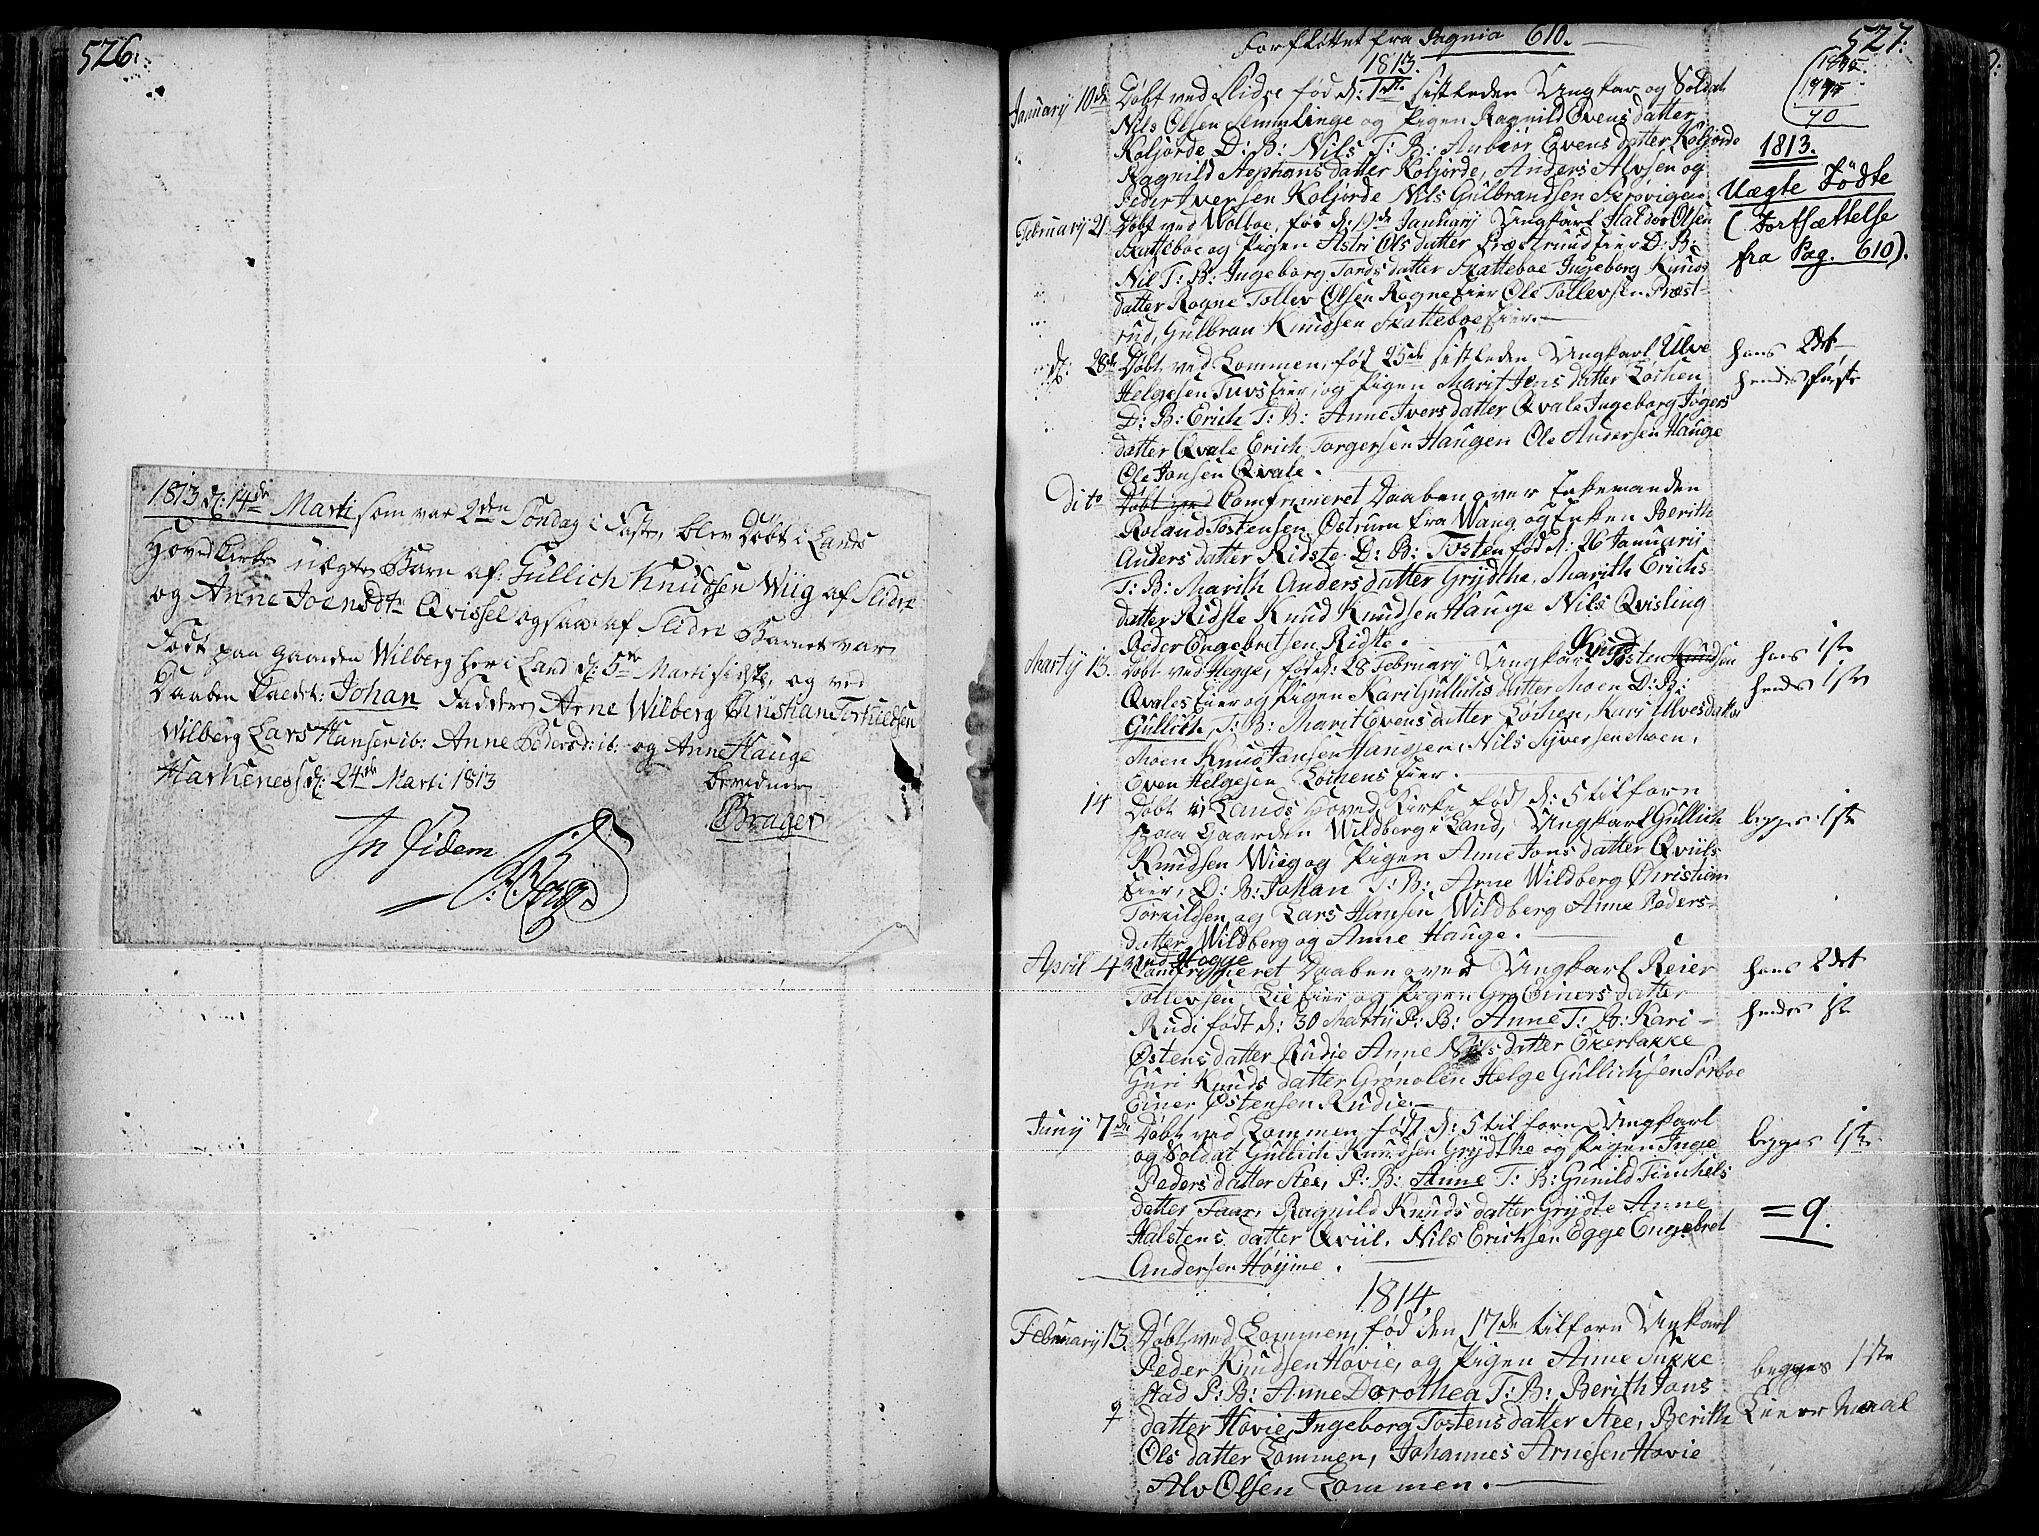 526.
1813 d: 14de Marti som var 2den Söndag i Faste, blev Døbt i Lands
Hoved Kirke uægte Barn af: Gullich Knudsen Wiig af Slidre
og Anne Joensdtr Qvissel ogsaa af Slidre Barnet var
Født paa gaarden Wilberg her i Land d: 5te Marti sidste, og ved
Daaben kaldt: Johan Faddere Arne Wilberg Christian Torkildsen
Wilberg Lars Hansen ib: Anne Pedersd: ib: og Anne Hauge
d: 24de Marti 1813
bevidner
Brager
In fidem
527.
Forflöttet fra Pagnia 610.
1813.
Januarij 10de Døbt ved Slidre fød d: 1ste sistleden Ungkar og Soldat
Nils Olsen Semmlinge og Pigen Ragnild Evens datter
Koljorde D: B: Nils T: B: Anbiør Evens datter Koljorde
Ragnild Stephans datter Koljorde, Anders Alvsen og
Peder Iversen Koljorde Nils Gulbrandsen Skrøvigen
1813.
Uægte Fødte
(Fortsættelse
fra Pag. 610).
Februarij 21 Døbt ved Wolboe, fød d: Januarij Ungkarl Haldor Olsen
Skatteboe og Pigen Astri Ols datter Præstrud Eier D: B:
Nil T: B: Ingeborg Tords datter Skatteboe Ingeborg Knuds
datter Rogne Tollev Olsen Rogne Eier Ole Tollevsen Præst-
rud, Gulbran Knudsen Skatteboe Eier.
d: 28de Døbt ved Lommen, fød 25de sistleden Ungkarl Ulve
Helgesen Tuvs Eier, og Pigen Marit Jens datter Lochen
D: B: Erich T: B: Anne Ivers datter Qvale Ingeborg Jøgers
datter Qvale Erich Torgersen Haugen Ole Andersen Hauge
Ole Jonsen Qvale.
hans 2det
hendes første
Dito Døbt ved Comfirmeret Daaben over Enkemanden
Roland Tostensen Østrum fra Wang og Enken Berith
Anders datter Ridste D: B: Tosten fød d: 26 Januarij
T: B: Marith Anders datter Grydthe, Marith Erichs
datter Ridste Knud Knudsen Hauge Nils Qvisling
Peder Engebretsen Ridste.
Martij 13. Døbt ved Hegge, fød d: 28 Februarij Ungkarl Knud Tosten Knudsen
Qvales Eier og Pigen Kari Gullichs datter Moen D: B:
Gullich T: B: Marit Evens datter Lochen, Kari Ulves datter
Moen Knud Jansen Haugen, Nils Syversen Moen,
Even Helgesen Lochens Eier.
hans 1ste
hendes 1ste
14 Døbt i Lands Hoved Kirke fød d: 5 tilforn
paa Gaarden Wildberg i Land, Ungkarl Gullich
Knudsen Wiig og Pigen Anne Jons datter Qviils
Eier, D: B: Johan T: B: Arne Wildberg Christian
Torkildsen og Lars Hansen Wildberg Anne Peders-
datter Wildberg og Anne Hauge.
begges 1ste
April 4 ved Hegge
Comfirmeret Daaben over Ungkarl Reier
Tollevsen Lie Eier og Pigen Gro Einers datter
Rudi født d: 30 Martij P: B: Anne T: B: Kari
Østens datter Rudie Anne Nils datter Ekerbakke
Guri Knuds datter Grønolen Helge Gullichsen Sørboe
Einer Østensen Rudie.
hans 2det
hendes 1ste
Junij 7de Døbt ved Lommen født d: 5 tilforn Ungkarl
og Soldat Gullich Knudsen Grydthe og Pigen Inge
Peders datter Stee, P: B: Anne T: B: Gunild Finchels
datter Faar, Ragnild Knuds datter Grydte Anne
Halstens datter Qviil, Nils Erichsen Egge Engebret
Andersen Høyme.
begges 1ste
= 9.
1814
Februarij 13. Døbt ved Lommen, fød den 17de tilforn Ungkarl
Peder Knudsen Hovie, og Pigen Anne Sukke
stad P: B: Anne Dorothea T: B: Berith Jons
datter Hovie, Ingeborg Tostens datter Stee, Berith
Ols datter Lommen, Johannes Arnesen Hovie
Alv Olsen Lommen.
begges 1ste
Leiermaal